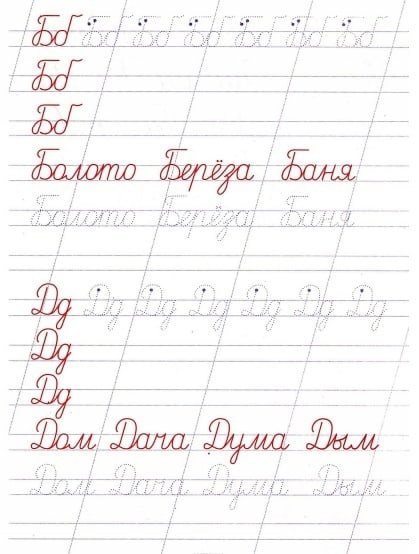 Бб Бб Бб Бб Бб Бб Бб
Бб
Бб
Болото Берёза Баня
Болото Берёза Баня
Дд Дд Дд Дд Дд Дд Дд
Дд
Дд
Дом Дача Дума Дым
Дом Дача Дума Дым